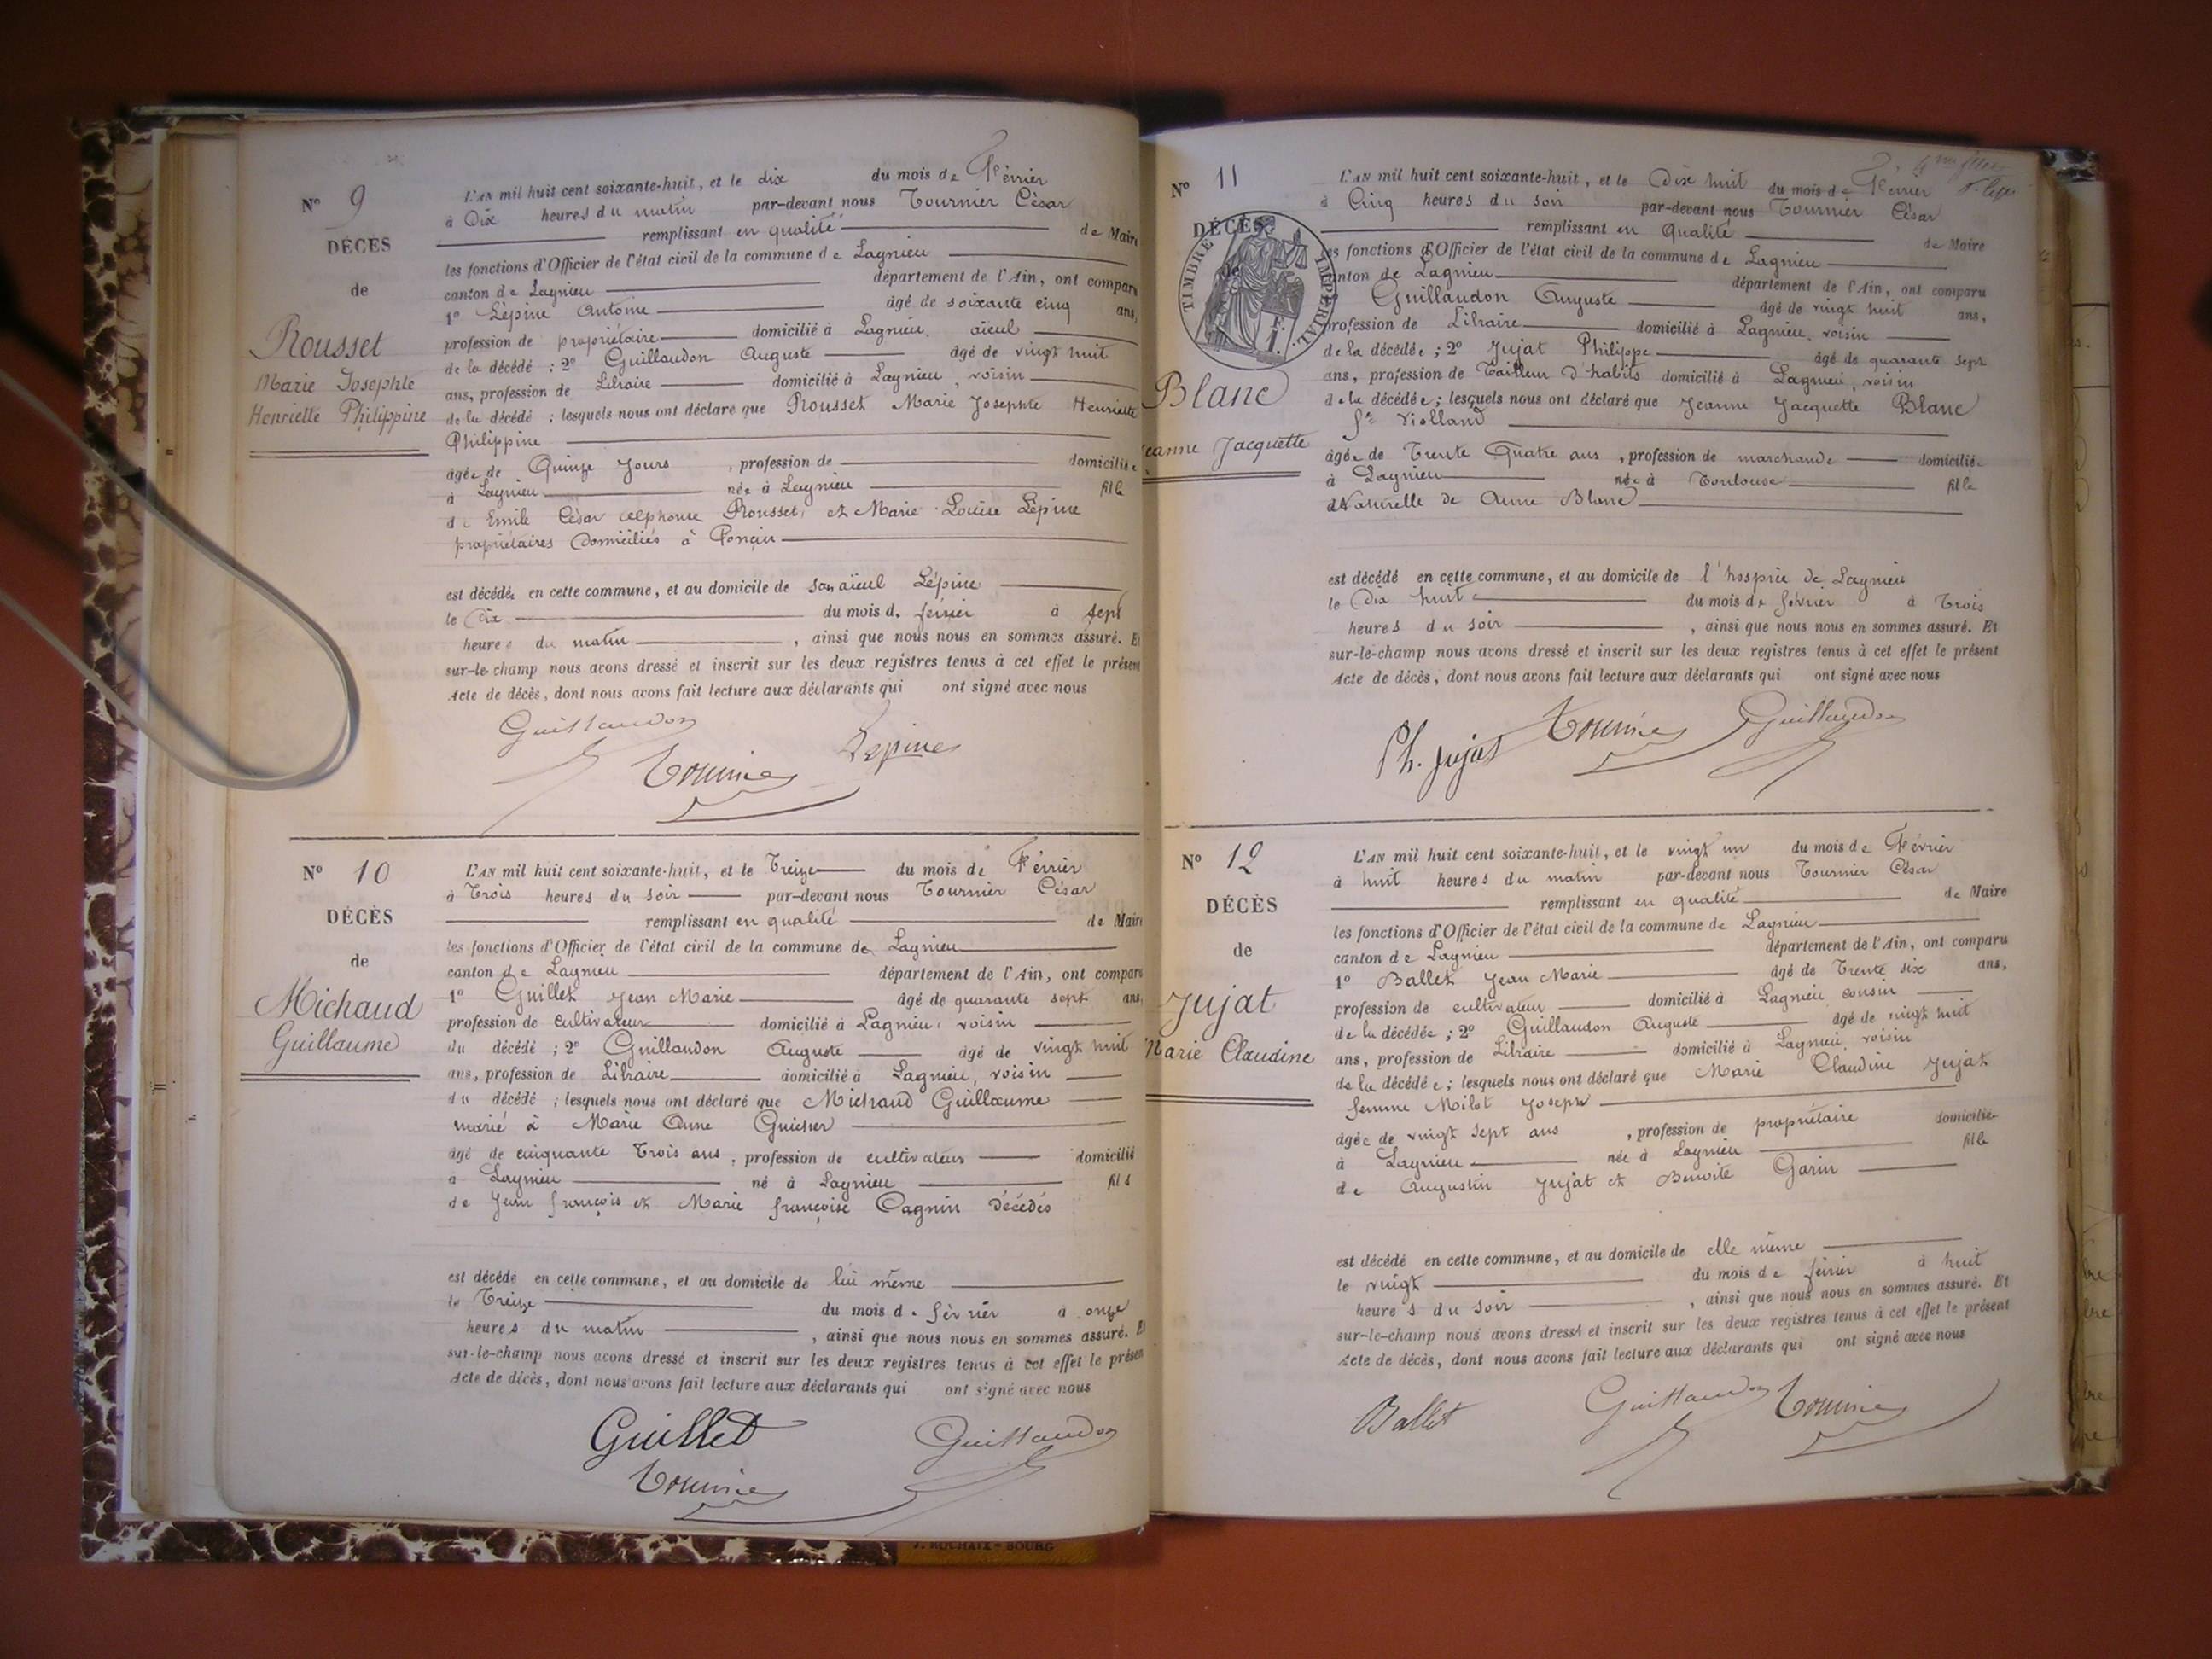 N° 9
DÉCÈS
de
Rousset
Marie Josephte
Henriette Philippine
L'AN mil huit cent soixante-huit, et le dix du mois de Février
à Dix heures du matin par-devant nous Tournier César
remplissant en qualité de Maire
les fonctions d'Officier de l'état civil de la commune de Lagnieu
canton de Lagnieu département de l'Ain, ont comparu
1° Lépine Antoine âgé de soixante cinq ans,
profession de propriétaire domicilié à Lagnieu, aïeul
de la décédé ; 2° Guillaudon Auguste âgé de vingt huit
ans, profession de Libraire domicilié à Lagnieu, voisin
de la décédé ; lesquels nous ont déclaré que Rousset Marie Josephte Henriette
Philippine
âgée de Quinze Jours , profession de domiciliée
à Lagnieu née à Lagnieu fille
de Emile César Alphonse Rousset, et Marie Louise Lépine
propriétaires Domiciliés à Poncin
est décédée en cette commune, et au domicile de son aïeul Lépine
le dix du mois de février à sept
heures du matin , ainsi que nous nous en sommes assuré. Et
sur-le-champ nous avons dressé et inscrit sur les deux registres tenus à cet effet le présent
Acte de décès, dont nous avons fait lecture aux déclarants qui ont signé avec nous
Guillaudon
Tournier
Lepine
N° 10
DÉCÈS
de
Michaud
Guillaume
L'AN mil huit cent soixante-huit, et le Treize du mois de Février
à Trois heures du soir par-devant nous Tournier César
remplissant en qualité de Maire
les fonctions d'Officier de l'état civil de la commune de Lagnieu
canton de Lagnieu département de l'Ain, ont comparu
1° Guillet Jean Marie âgé de quarante sept ans,
profession de cultivateur domicilié à Lagnieu, voisin
du décédé ; 2° Guillaudon Auguste âgé de vingt huit
ans, profession de Libraire domicilié à Lagnieu, voisin
du décédé ; lesquels nous ont déclaré que Michaud Guillaume
marié à Marie Anne Guicher
âgé de cinquante Trois ans , profession de cultivateur domicilié
à Lagnieu né à Lagnieu fils
de Jean François et Marie françoise Cagnin Décédés
est décédé en cette commune, et au domicile de lui même
le Treize du mois de février à onze
heures du matin , ainsi que nous nous en sommes assuré. Et
sur-le-champ nous avons dressé et inscrit sur les deux registres tenus à cet effet le présent
Acte de décès, dont nous avons fait lecture aux déclarants qui ont signé avec nous
Guillet
Guillaudon
Tournier
J. ROCHAIX - BOURG
N° 11
DÉCÈS
de
TIMBRE IMPÉRIAL
1 F.
Blanc
Jeanne Jacquette
L'AN mil huit cent soixante-huit, et le Dix huit du mois de Février
à Cinq heures du soir par-devant nous Tournier César
remplissant en qualité de Maire
les fonctions d'Officier de l'état civil de la commune de Lagnieu
canton de Lagnieu département de l'Ain, ont comparu
Guillaudon Auguste âgé de vingt huit ans,
profession de Libraire domicilié à Lagnieu, voisin
de la décédée ; 2° Jujat Philippe âgé de quarante sept
ans, profession de Tailleur d'habits domicilié à Lagnieu, voisin
de la décédée ; lesquels nous ont déclaré que Jeanne Jacquette Blanc
fe Violland
âgée de Trente Quatre ans , profession de marchande domiciliée
à Lagnieu née à Toulouse fille
Naturelle de Anne Blanc
est décédé en cette commune, et au domicile de l'hospice de Lagnieu
le Dix huit du mois de février à Trois
heures du soir , ainsi que nous nous en sommes assuré. Et
sur-le-champ nous avons dressé et inscrit sur les deux registres tenus à cet effet le présent
Acte de décès, dont nous avons fait lecture aux déclarants qui ont signé avec nous
Ph. Jujat Tournier Guillaudon
N° 12
DÉCÈS
de
Jujat
Marie Claudine
L'AN mil huit cent soixante-huit, et le vingt un du mois de Février
à huit heures du matin par-devant nous Tournier César
remplissant en qualité de Maire
les fonctions d'Officier de l'état civil de la commune de Lagnieu
canton de Lagnieu département de l'Ain, ont comparu
1° Ballet Jean Marie âgé de Trente six ans,
profession de cultivateur domicilié à Lagnieu cousin
de la décédée ; 2° Guillaudon Auguste âgé de vingt huit
ans, profession de Libraire domicilié à Lagnieu, voisin
de la décédée ; lesquels nous ont déclaré que Marie Claudine Jujat
femme Milot Joseph
âgée de vingt sept ans , profession de propriétaire domiciliée
à Lagnieu née à Lagnieu fille
de Augustin Jujat et Benoite Garin
est décédé en cette commune, et au domicile de elle même
le vingt du mois de février à huit
heures du soir , ainsi que nous nous en sommes assuré. Et
sur-le-champ nous avons dressé et inscrit sur les deux registres tenus à cet effet le présent
Acte de décès, dont nous avons fait lecture aux déclarants qui ont signé avec nous
Ballet Guillaudon Tournier